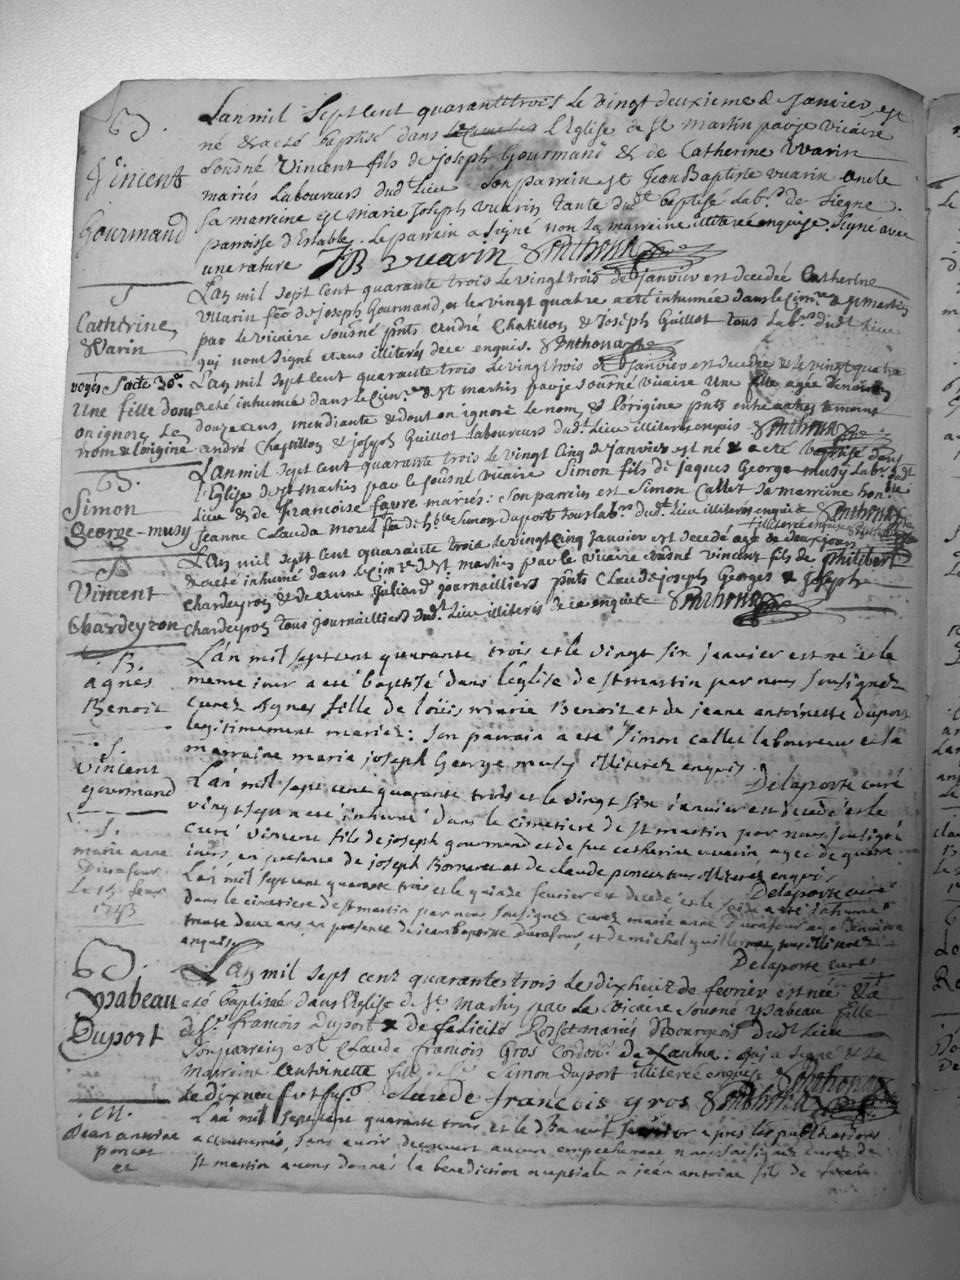 B.
Vincent
Gourmand
L'an mil sept cent quarante trois le vingt deuxieme de Janvier est
né & a eté baptisé dans l'Eglise de St martin par je vicaire
sousné Vincent fils de Joseph Gourmand & de Catherine Vuarin
mariés Laboureurs dud.t Lieu Son parrein st Jean Baptiste vuarin oncle
La marreine est Marie Joseph Vuarin Tante dud.t baptisé Lab.s de
paroisse d'Estable. Le parrein a signé non La marreine illiterée enquise. Signé avec
une rature JB vuarin Ponthona
S
Catherine
Warin
L'an mil sept cent quarante trois le vingt trois de Janvier est decedée Catherine
Vuarin de Joseph Gourmand, et le vingt quatre a eté inhumée dans le Cim.re de St martin
par le vicaire sousné p.nts André Chatillon & Joseph Guillot tous Lab.s dud.t Lieu
qui n'ont signé illiterés de ce enquis. Ponthona
voyés l'acte
une fille dont
on ignore Le
nom & l'origine
L'an mil sept cent quarante trois le vingt trois de Janvier est decedée & le vingt quatre
a eté inhumée dans le Cim.re de St martin par je sousné vicaire Une fille agée d'environ
douze ans, mendiante & dont on ignore le nom & l'origine p.nts
andré Chatillon & Joseph Guillot Laboureurs dud.t Lieu illiterés enquis Ponthona
B.
Simon
George-musy
L'an mil sept cent quarante trois le vingt cinq de Janvier est né & a eté baptisé dans
l'Eglise de St martin par le sousné vicaire Simon fils de Jaques George musy Lab.r dud.t
Lieu & de francoise favre mariés: Son parrein est Simon Callet La marreine hon.ble
Jeanne Clauda morel de h.ble Simon Duport tous lab.rs dud.t Lieu illiterés enquis Ponthona
S
Vincent
Chardeyron
L'an mil sept cent quarante trois le vingt cinq Janvier est decedé agé de deux jours
& a eté inhumé dans le Cim.re de St martin par le vicaire sousné vincent fils de philibert
Chardeyron & de Juliard journailliers p.nts Claude Joseph Georges & Joseph
Chardeyron tous journailliers dud.t Lieu illiterés de ce enquis Ponthona
B.
agnes
Benoit
L'an mil sept cent quarante trois et le vingt six janvier est né et le
meme jour a eté baptisé dans l'eglise de st martin par nous soussignez
curez Agnes fille de loüis marie Benoit et de jeane antoinette duport
legitimement mariez: son parrain a eté Simon callet laboureur et la
marraine maria joseph George musy illiterez enquis. Delaporte curé
S.
vincent
gourmand
L'an mil sept cent quarante trois et le vingt six janvier est decedé et le
vingt sept a eté inhumé dans le cimetiere de st martin par nous soussigné
curé vincent fils de joseph gourmand et de feu catherine vuarin agé de quatre
jours, en presence de joseph Bornarel et de claude poncet tous illiterez enquis
Delaporte curé
S.
marie anne
Durafour
Le 15 fevr
1743
L'an mil sept cent quarante trois et le quinze fevrier est decedé et le seize a eté inhumé
dans le cimetiere de st martin par nous soussignez curez marie anne Durafour agé d'environ
trente deux ans, en presence de jean baptiste Durafour, et de michel guillermet tous illiterez
enquis. Delaporte curé
B.
Ysabeau
Duport
L'an mil sept cent quarante trois le dix heuit de fevrier est née & a
eté baptisée dans l'Eglise de St Martin par Le vicaire sousné Ysabeau fille
de S.r francois Duport & de felicité Rosset mariés Bourgeois dud.t Lieu
Son parrein est Claude francois Gros Cordon.r de : qui a signé & La
marreine antoinette Simon duport illiterée enquise Ponthona
Le dix neuf Claude francois gros Ponthona
M.
Jean antoine
poncet
et
L'an mil sept cent quarante trois et le fevrier après les publications
accoutumés, sans avoir decouvert aucun empechement nous soussignez curez de
st martin avons donnés la benediction nuptiale a jean antoine fils de